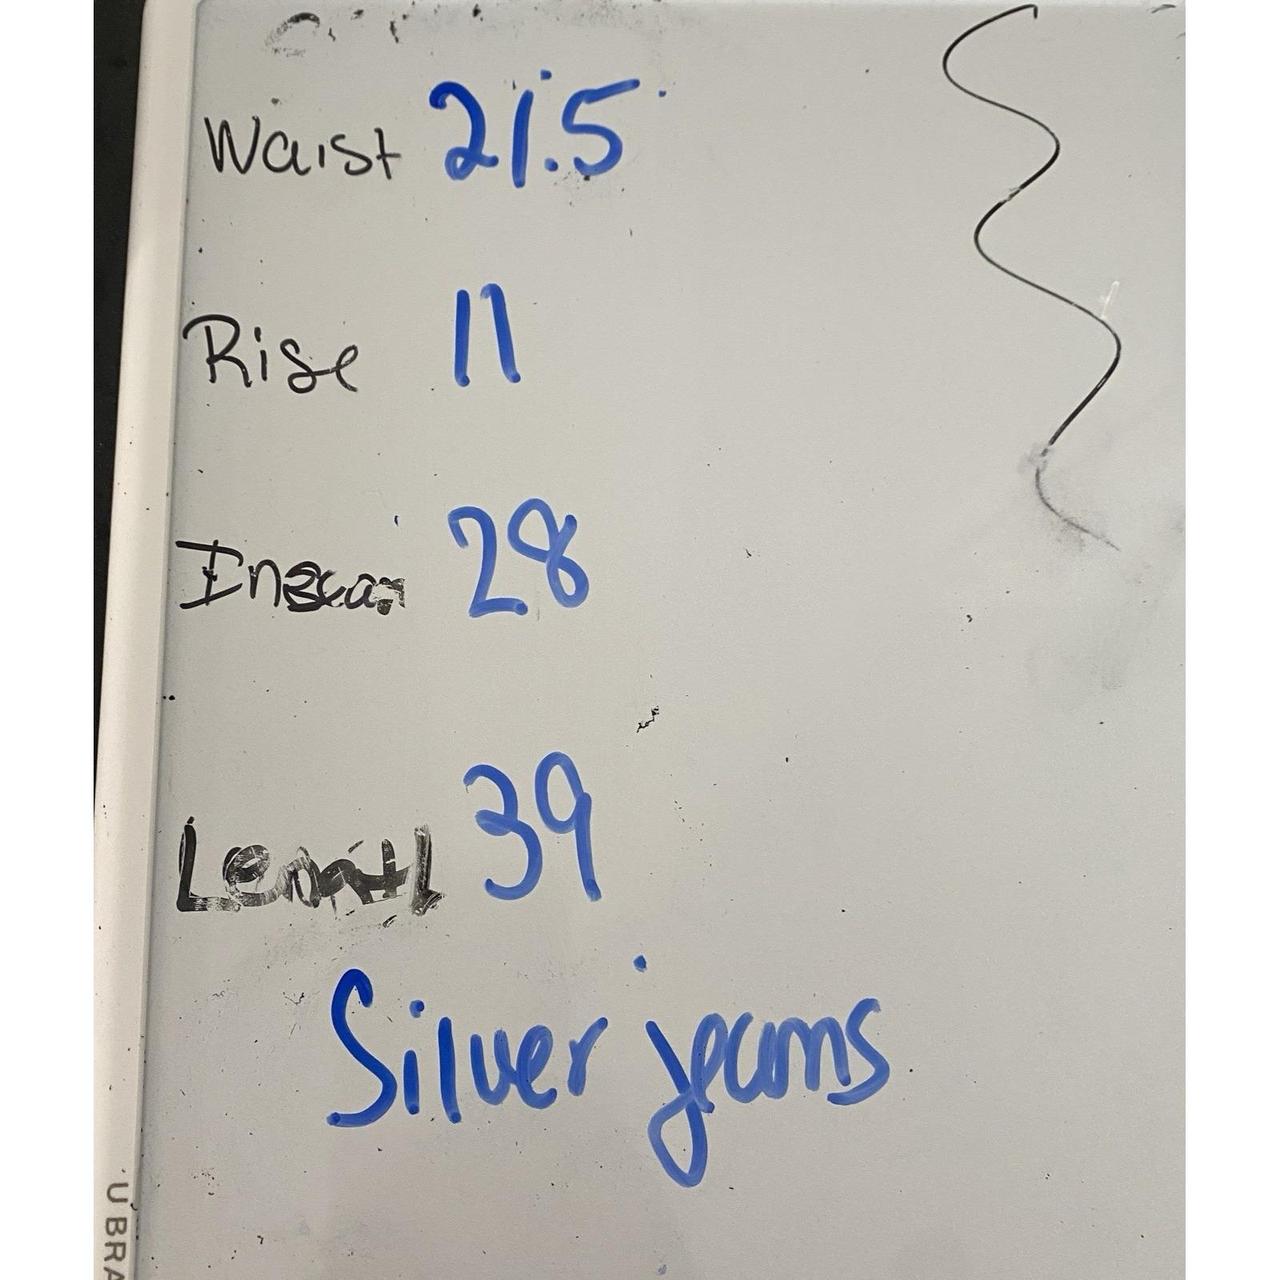 Waist 21.5
Rise 11
Inseam 28
Length 39
Silver jeans
U BRA